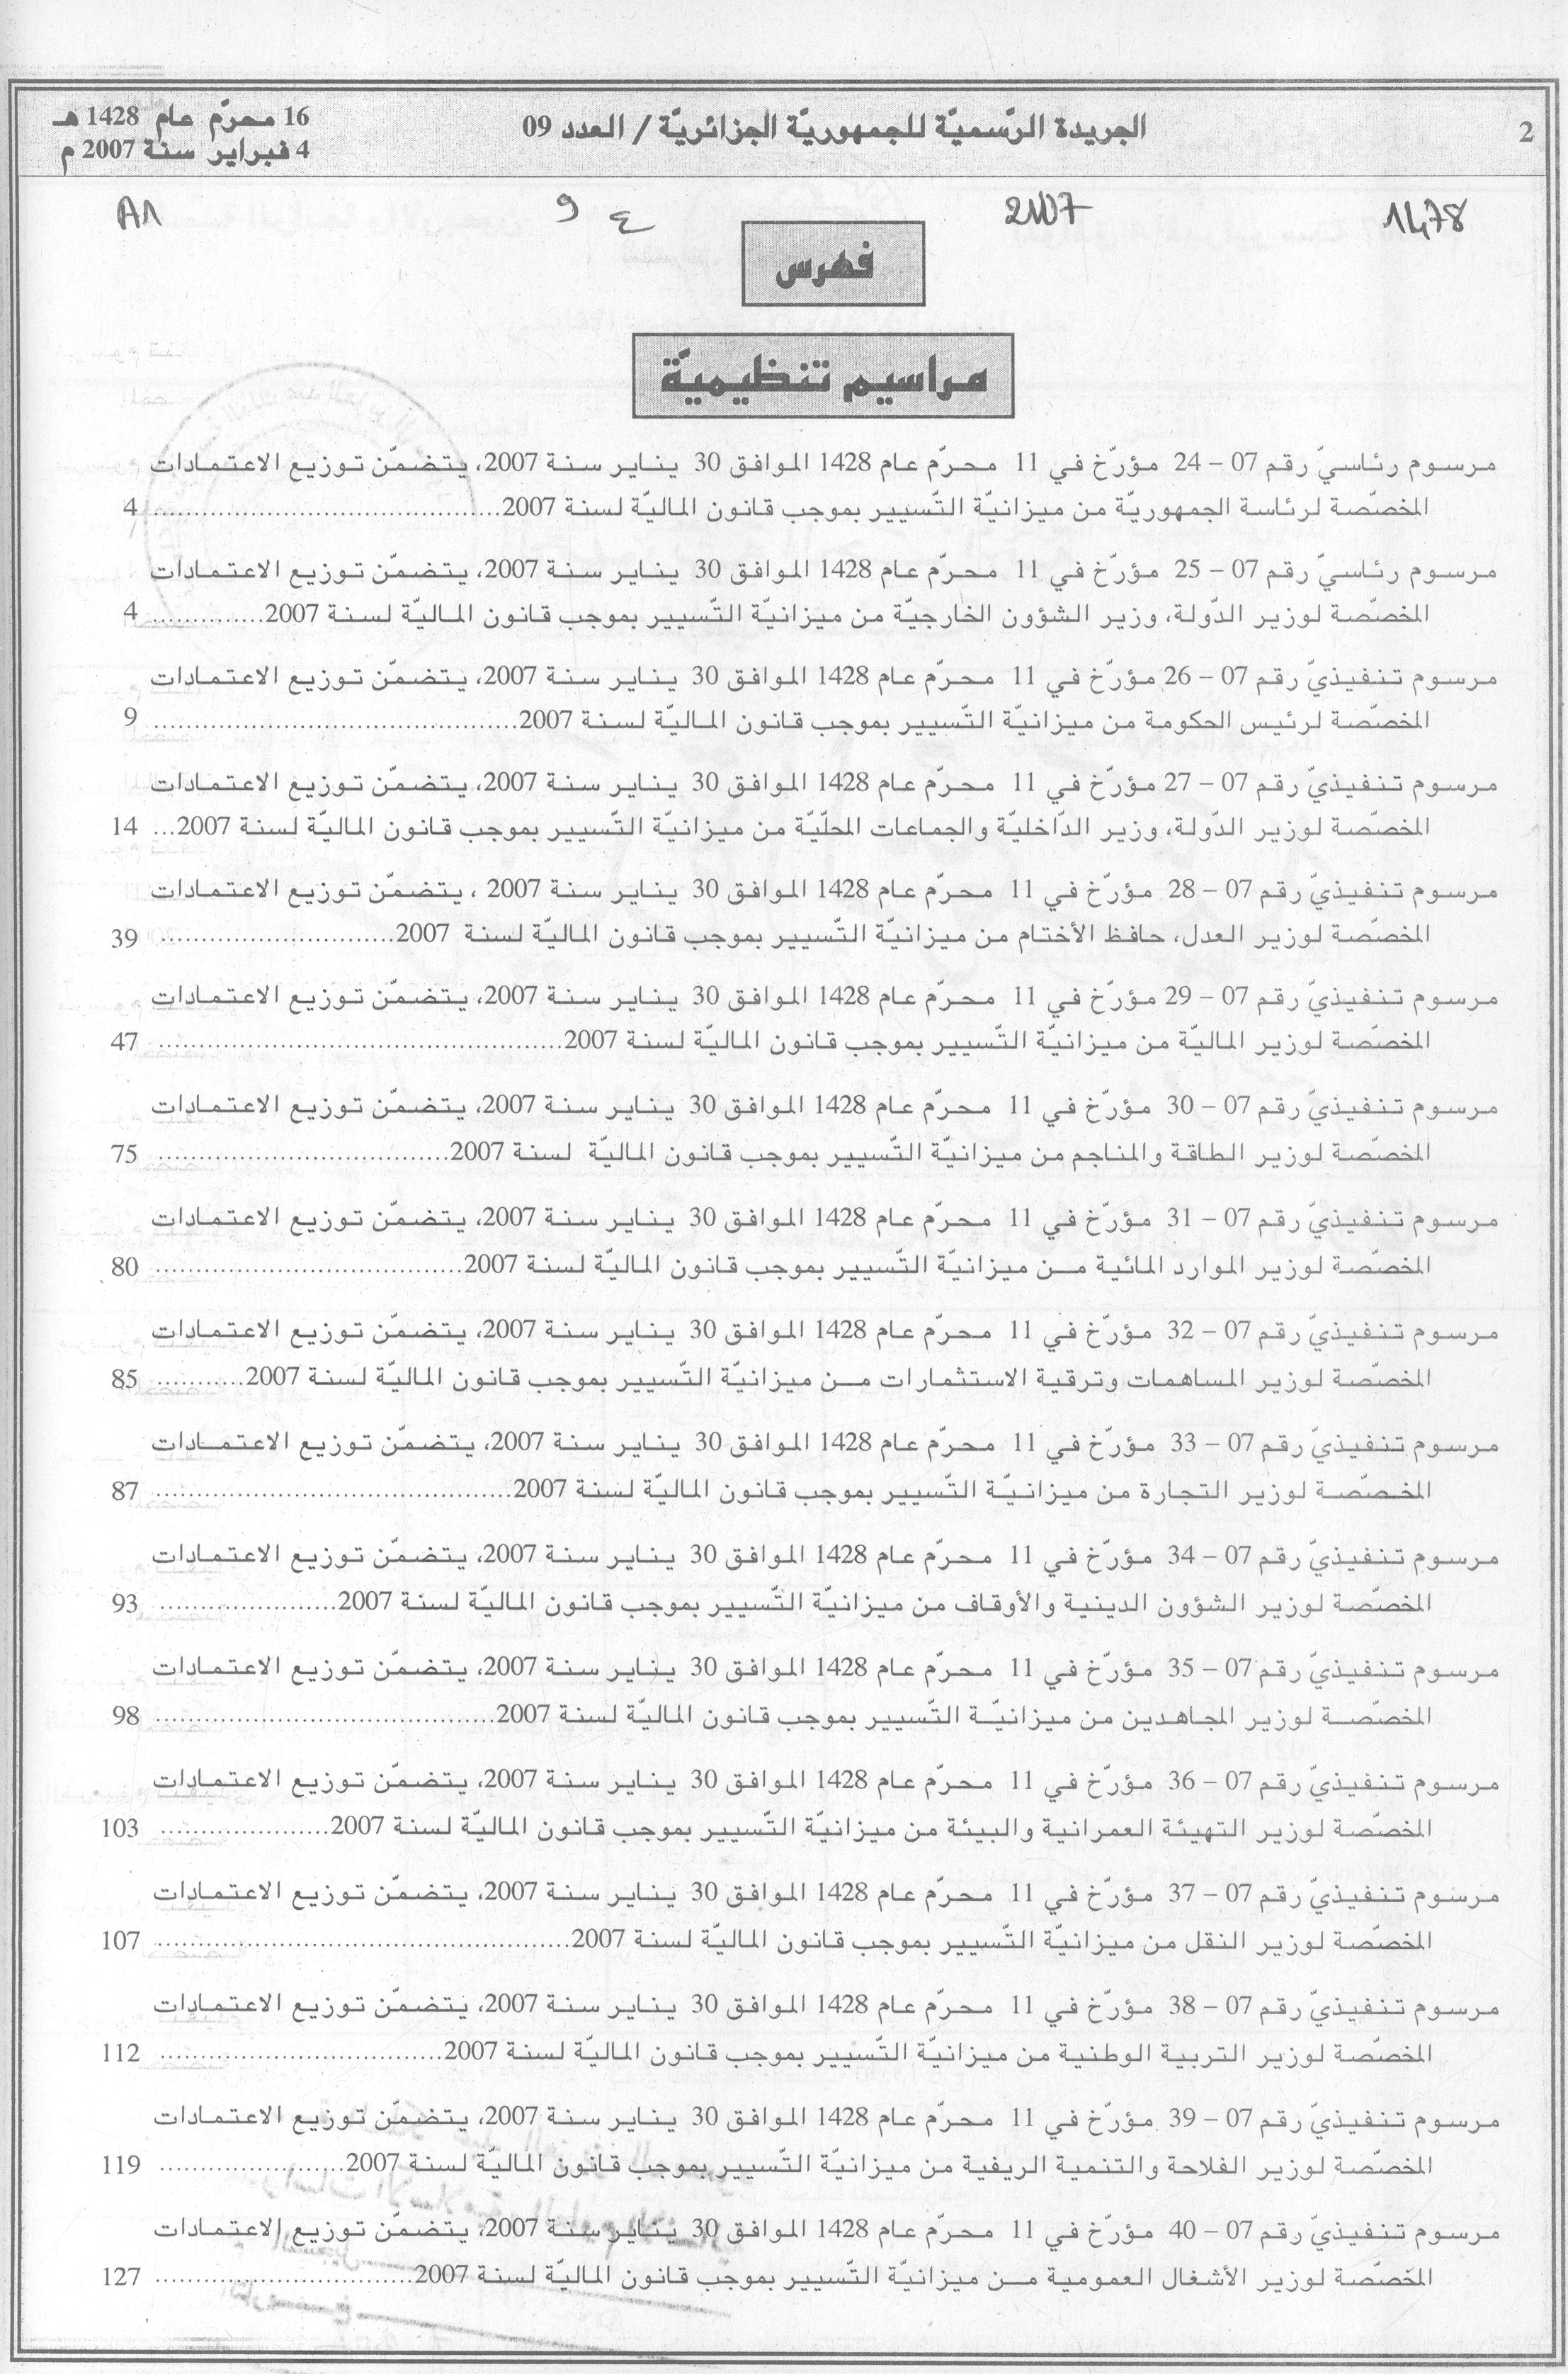 2
الجريدة الرّسميّة للجمهوريّة الجزائريّة / العدد 09
16 محرّم عام 1428 هـ
4 فبراير سنة 2007 م
1478
2007
9 ع
A1
فهرس
مراسيم تنظيميّة
مرسوم رئاسيّ رقم 07 – 24 مؤرّخ في 11 محرّم عام 1428 الموافق 30 يناير سنة 2007، يتضمّن توزيع الاعتمادات
المخصّصة لرئاسة الجمهوريّة من ميزانيّة التّسيير بموجب قانون الماليّة لسنة 2007........................................ 4
مرسوم رئاسيّ رقم 07 – 25 مؤرّخ في 11 محرّم عام 1428 الموافق 30 يناير سنة 2007، يتضمّن توزيع الاعتمادات
المخصّصة لوزير الدّولة، وزير الشؤون الخارجيّة من ميزانيّة التّسيير بموجب قانون الماليّة لسنة 2007.............. 4
مرسوم تنفيذيّ رقم 07 – 26 مؤرّخ في 11 محرّم عام 1428 الموافق 30 يناير سنة 2007، يتضمّن توزيع الاعتمادات
المخصّصة لرئيس الحكومة من ميزانيّة التّسيير بموجب قانون الماليّة لسنة 2007........................................ 9
مرسوم تنفيذيّ رقم 07 – 27 مؤرّخ في 11 محرّم عام 1428 الموافق 30 يناير سنة 2007، يتضمّن توزيع الاعتمادات
المخصّصة لوزير الدّولة، وزير الدّاخليّة والجماعات المحلّيّة من ميزانيّة التّسيير بموجب قانون الماليّة لسنة 2007... 14
مرسوم تنفيذيّ رقم 07 – 28 مؤرّخ في 11 محرّم عام 1428 الموافق 30 يناير سنة 2007 ، يتضمّن توزيع الاعتمادات
المخصّصة لوزير العدل، حافظ الأختام من ميزانيّة التّسيير بموجب قانون الماليّة لسنة 2007............................ 39
مرسوم تنفيذيّ رقم 07 – 29 مؤرّخ في 11 محرّم عام 1428 الموافق 30 يناير سنة 2007، يتضمّن توزيع الاعتمادات
المخصّصة لوزير الماليّة من ميزانيّة التّسيير بموجب قانون الماليّة لسنة 2007............................................ 47
مرسوم تنفيذيّ رقم 07 – 30 مؤرّخ في 11 محرّم عام 1428 الموافق 30 يناير سنة 2007، يتضمّن توزيع الاعتمادات
المخصّصة لوزير الطاقة والمناجم من ميزانيّة التّسيير بموجب قانون الماليّة لسنة 2007.................................. 75
مرسوم تنفيذيّ رقم 07 – 31 مؤرّخ في 11 محرّم عام 1428 الموافق 30 يناير سنة 2007، يتضمّن توزيع الاعتمادات
المخصّصة لوزير الموارد المائية من ميزانيّة التّسيير بموجب قانون الماليّة لسنة 2007................................... 80
مرسوم تنفيذيّ رقم 07 – 32 مؤرّخ في 11 محرّم عام 1428 الموافق 30 يناير سنة 2007، يتضمّن توزيع الاعتمادات
المخصّصة لوزير المساهمات وترقية الاستثمارات من ميزانيّة التّسيير بموجب قانون الماليّة لسنة 2007............ 85
مرسوم تنفيذيّ رقم 07 – 33 مؤرّخ في 11 محرّم عام 1428 الموافق 30 يناير سنة 2007، يتضمّن توزيع الاعتمادات
المخصّصة لوزير التجارة من ميزانيّة التّسيير بموجب قانون الماليّة لسنة 2007........................................ 87
مرسوم تنفيذيّ رقم 07 – 34 مؤرّخ في 11 محرّم عام 1428 الموافق 30 يناير سنة 2007، يتضمّن توزيع الاعتمادات
المخصّصة لوزير الشؤون الدينية والأوقاف من ميزانيّة التّسيير بموجب قانون الماليّة لسنة 2007...................... 93
مرسوم تنفيذيّ رقم 07 – 35 مؤرّخ في 11 محرّم عام 1428 الموافق 30 يناير سنة 2007، يتضمّن توزيع الاعتمادات
المخصّصة لوزير المجاهدين من ميزانيّة التّسيير بموجب قانون الماليّة لسنة 2007........................................ 98
مرسوم تنفيذيّ رقم 07 – 36 مؤرّخ في 11 محرّم عام 1428 الموافق 30 يناير سنة 2007، يتضمّن توزيع الاعتمادات
المخصّصة لوزير التهيئة العمرانية والبيئة من ميزانيّة التّسيير بموجب قانون الماليّة لسنة 2007...................... 103
مرسوم تنفيذيّ رقم 07 – 37 مؤرّخ في 11 محرّم عام 1428 الموافق 30 يناير سنة 2007، يتضمّن توزيع الاعتمادات
المخصّصة لوزير النقل من ميزانيّة التّسيير بموجب قانون الماليّة لسنة 2007............................................ 107
مرسوم تنفيذيّ رقم 07 – 38 مؤرّخ في 11 محرّم عام 1428 الموافق 30 يناير سنة 2007، يتضمّن توزيع الاعتمادات
المخصّصة لوزير التربية الوطنية من ميزانيّة التّسيير بموجب قانون الماليّة لسنة 2007.................................. 112
مرسوم تنفيذيّ رقم 07 – 39 مؤرّخ في 11 محرّم عام 1428 الموافق 30 يناير سنة 2007، يتضمّن توزيع الاعتمادات
المخصّصة لوزير الفلاحة والتنمية الريفية من ميزانيّة التّسيير بموجب قانون الماليّة لسنة 2007...................... 119
مرسوم تنفيذيّ رقم 07 – 40 مؤرّخ في 11 محرّم عام 1428 الموافق 30 يناير سنة 2007، يتضمّن توزيع الاعتمادات
المخصّصة لوزير الأشغال العمومية من ميزانيّة التّسيير بموجب قانون الماليّة لسنة 2007................................ 127